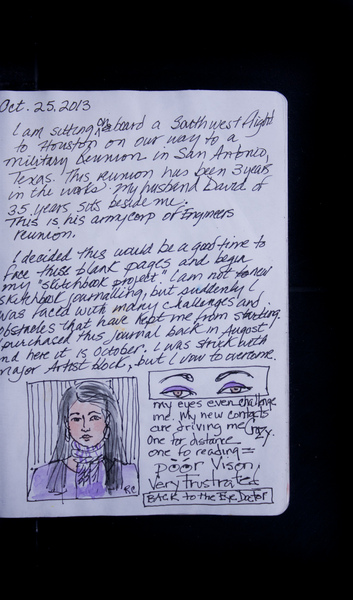 Oct. 25, 2013
I am sitting on board a Southwest flight
to Houston on our way to a
military Reunion in San Antonio,
Texas. This reunion has been 3 years
in the works. My husband David of
35 years sits beside me.
This is his army corp of Engineers
reunion.
I decided this would be a good time to
face these blank pages and begin
my "sketchbook project". I am not to new
sketchbook journalling, but suddenly I
was faced with many challenges and
obstacles that have kept me from starting.
I purchased this journal back in August
and here it is October. I was struck with
major Artist block, but I vow to overcome.
my eyes even challenge
me. My new contacts
are driving me Crazy.
One for distance
one fo reading =
poor Vison,
Very frustrated
BACK to the Eye Doctor
RC